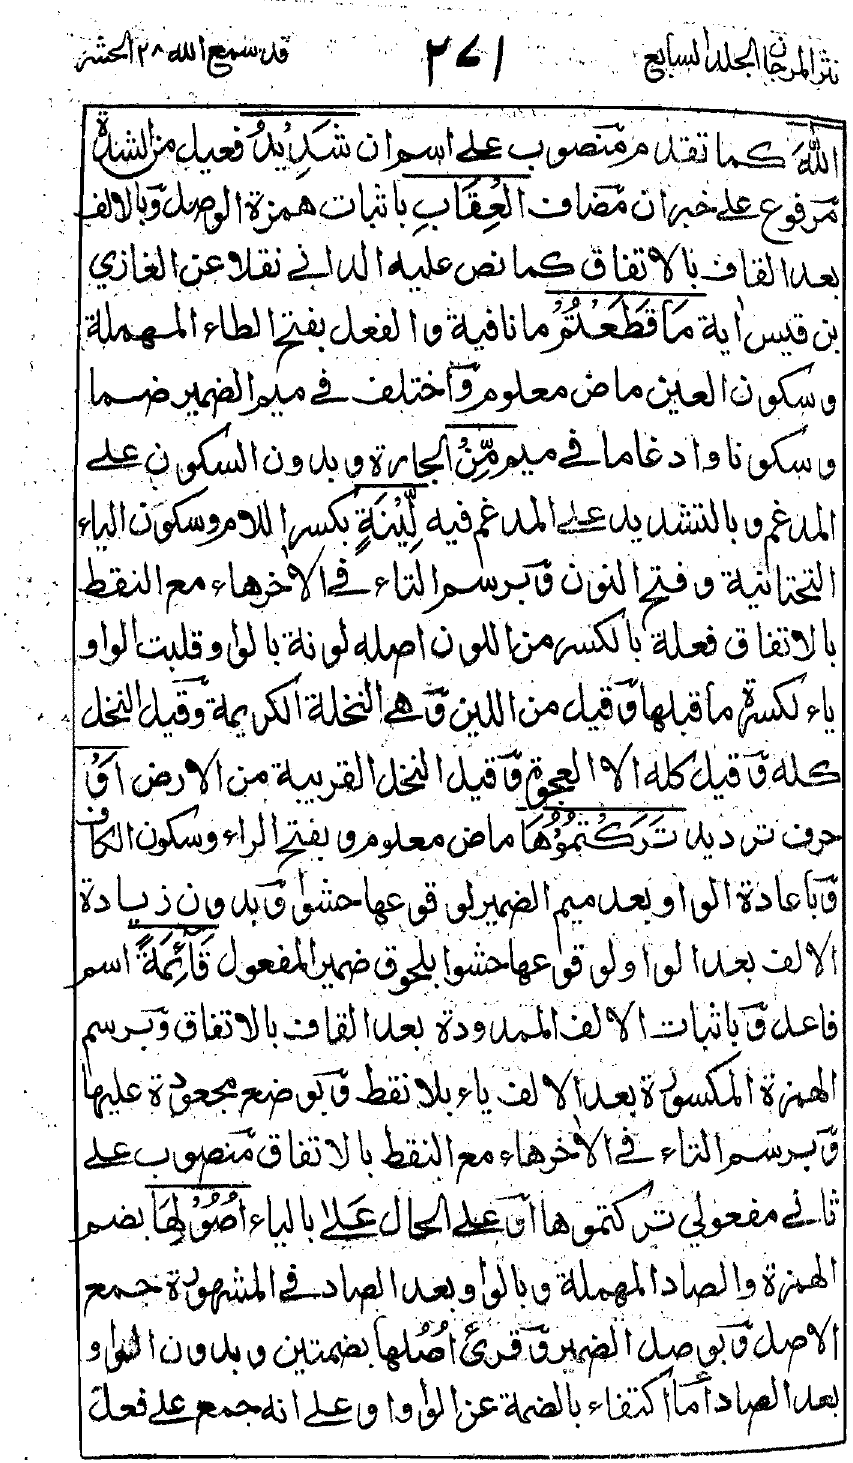 نثر المرجان الجلد السابع
٢٧١
قد سمع الله ٢٨ الحشر
اللّٰهَ كما تقدم منصوب على اسم ان شَدِيْدُ فعيل من الشدة
مرفوع على خبر ان مضاف الْعِقَابِ باثبات همزة الوصل وبالالف
بعد القاف بالاتفاق كما نص عليه الداني نقلا عن الغازي
بن قيس اٰية مَا قَطَعْتُمْ ما نافية والفعل بفتح الطاء المهملة
وسكون العين ماض معلوم واختلف في ميم الضمير ضما
وسكونا وادغاما في ميم مِّنْ الجارة وبدون السكون على
المدغم وبالتشديد على المدغم فيه لِّيْنَةٍ بكسر اللام وسكون الياء
التحتانية وفتح النون وبرسم التاء في الاٰخر هاء مع النقط
بالاتفاق فعلة بالكسر من اللون اصله لونة بالواو قلبت الواو
ياء لكسرة ما قبلها وقيل من اللين وهي النخلة الكريمة وقيل النخل
كله وقيل كله الا العجوة وقيل النخل القريبة من الارض اَوْ
حرف ترديد تَرَكْتُمُوْهَا ماض معلوم وبفتح الراء وسكون الكاف
وباعادة الواو بعد ميم الضمير لوقوعها حشوا وبدون زيادة
الالف بعد الواو لوقوعها حشوا بلحوق ضمير المفعول قَآئِمَةً اسم
فاعل وباثبات الالف الممدودة بعد القاف بالاتفاق وبرسم
الهمزة المكسورة بعد الالف ياء بلا نقط وبوضع مجعودة عليها
وبرسم التاء في الاٰخر هاء مع النقط بالاتفاق منصوب على
ثاني مفعولي تركتموها او على الحال عَلٰى بالياء اُصُوْلِهَا بضم
الهمزة والصاد المهملة وبالواو بعد الصاد في المشهورة جمع
الاصل وبوصل الضمير وقرئ اُصُلها بضمتين وبدون الواو
بعد الصاد اما اكتفاء بالضمة عن الواو او على انه جمع على فعل